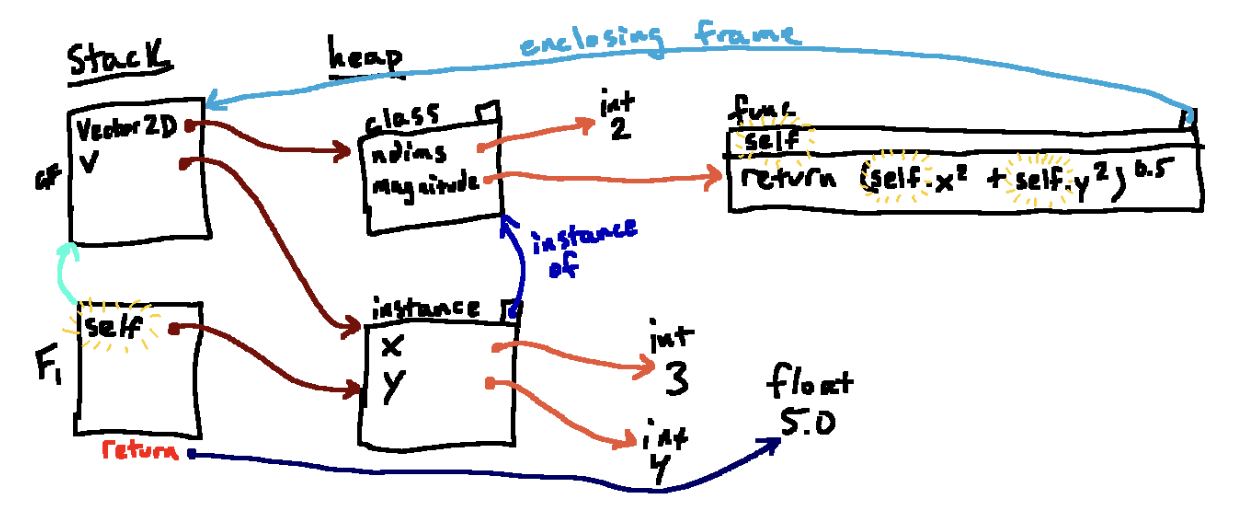 Stack
heap
enclosing frame
Vector2D
V
GF
class
ndims
magnitude
int
2
func
self
return (self.x² + self.y²)^0.5
instance of
F₁
self
return
instance
x
y
int
3
int
4
float
5.0